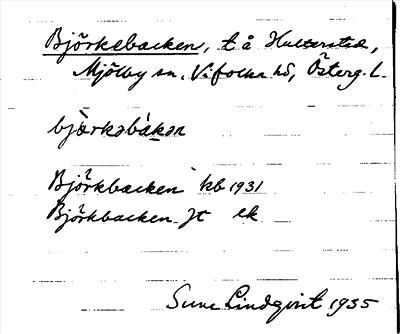 Björkebacken, t å Hulterstad,
Mjölby sn. Vifolka hd, Österg. l.
bjærkabàkan
Björkbacken kb 1931
Björkbacken Jt ek
Sune Lindqvist 1935